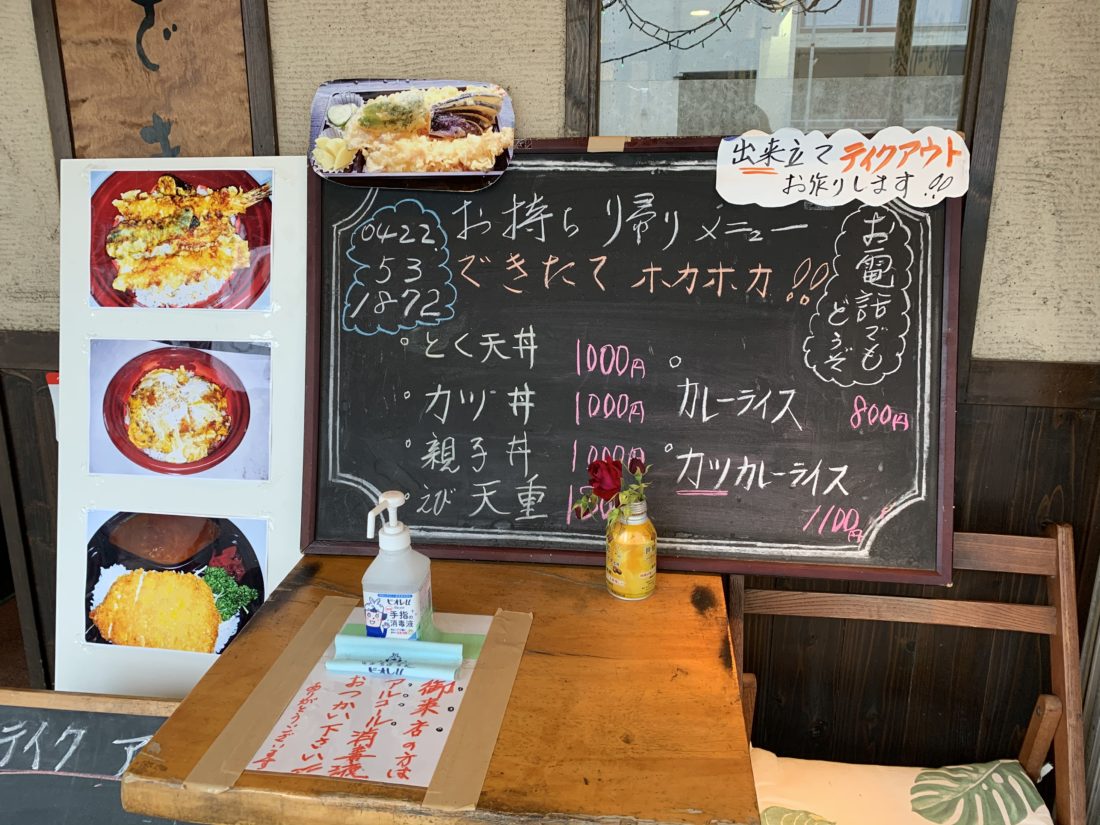 出来立て テイクアウト
お作りします!!
お持ち帰りメニュー
できたて ホカホカ!!
0422
53
1872
お電話でも
どうぞ
とく天丼 1000円
カツ丼 1000円
親子丼 1000円
えび天重
カレーライス 800円
カツカレーライス
1100円
ビオレu
手指の
消毒液
ビオレu
御来店の方は
アルコール消毒液
おつかい下さい!!
ありがとうございます
テイク ア